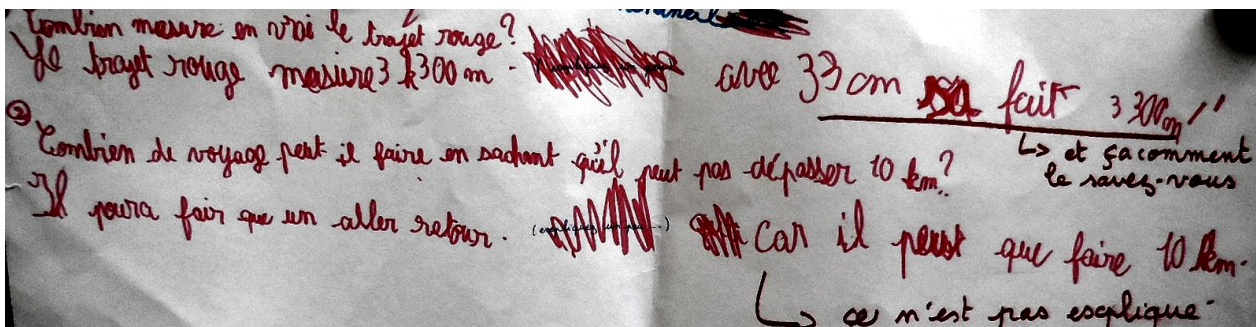 Combien mesure en vrai le trajet rouge?
Il trajet rouge mesure 3 k 300 m. avec 33 cm fait 3 300 m
↳ et ça comment
le savez-vous
② Combien de voyage peut il faire en sachant qu'il peut pas dépasser 10 km?
Il poura fair que un aller retour. Car il peut que faire 10 km.
↳ ce n'est pas explique